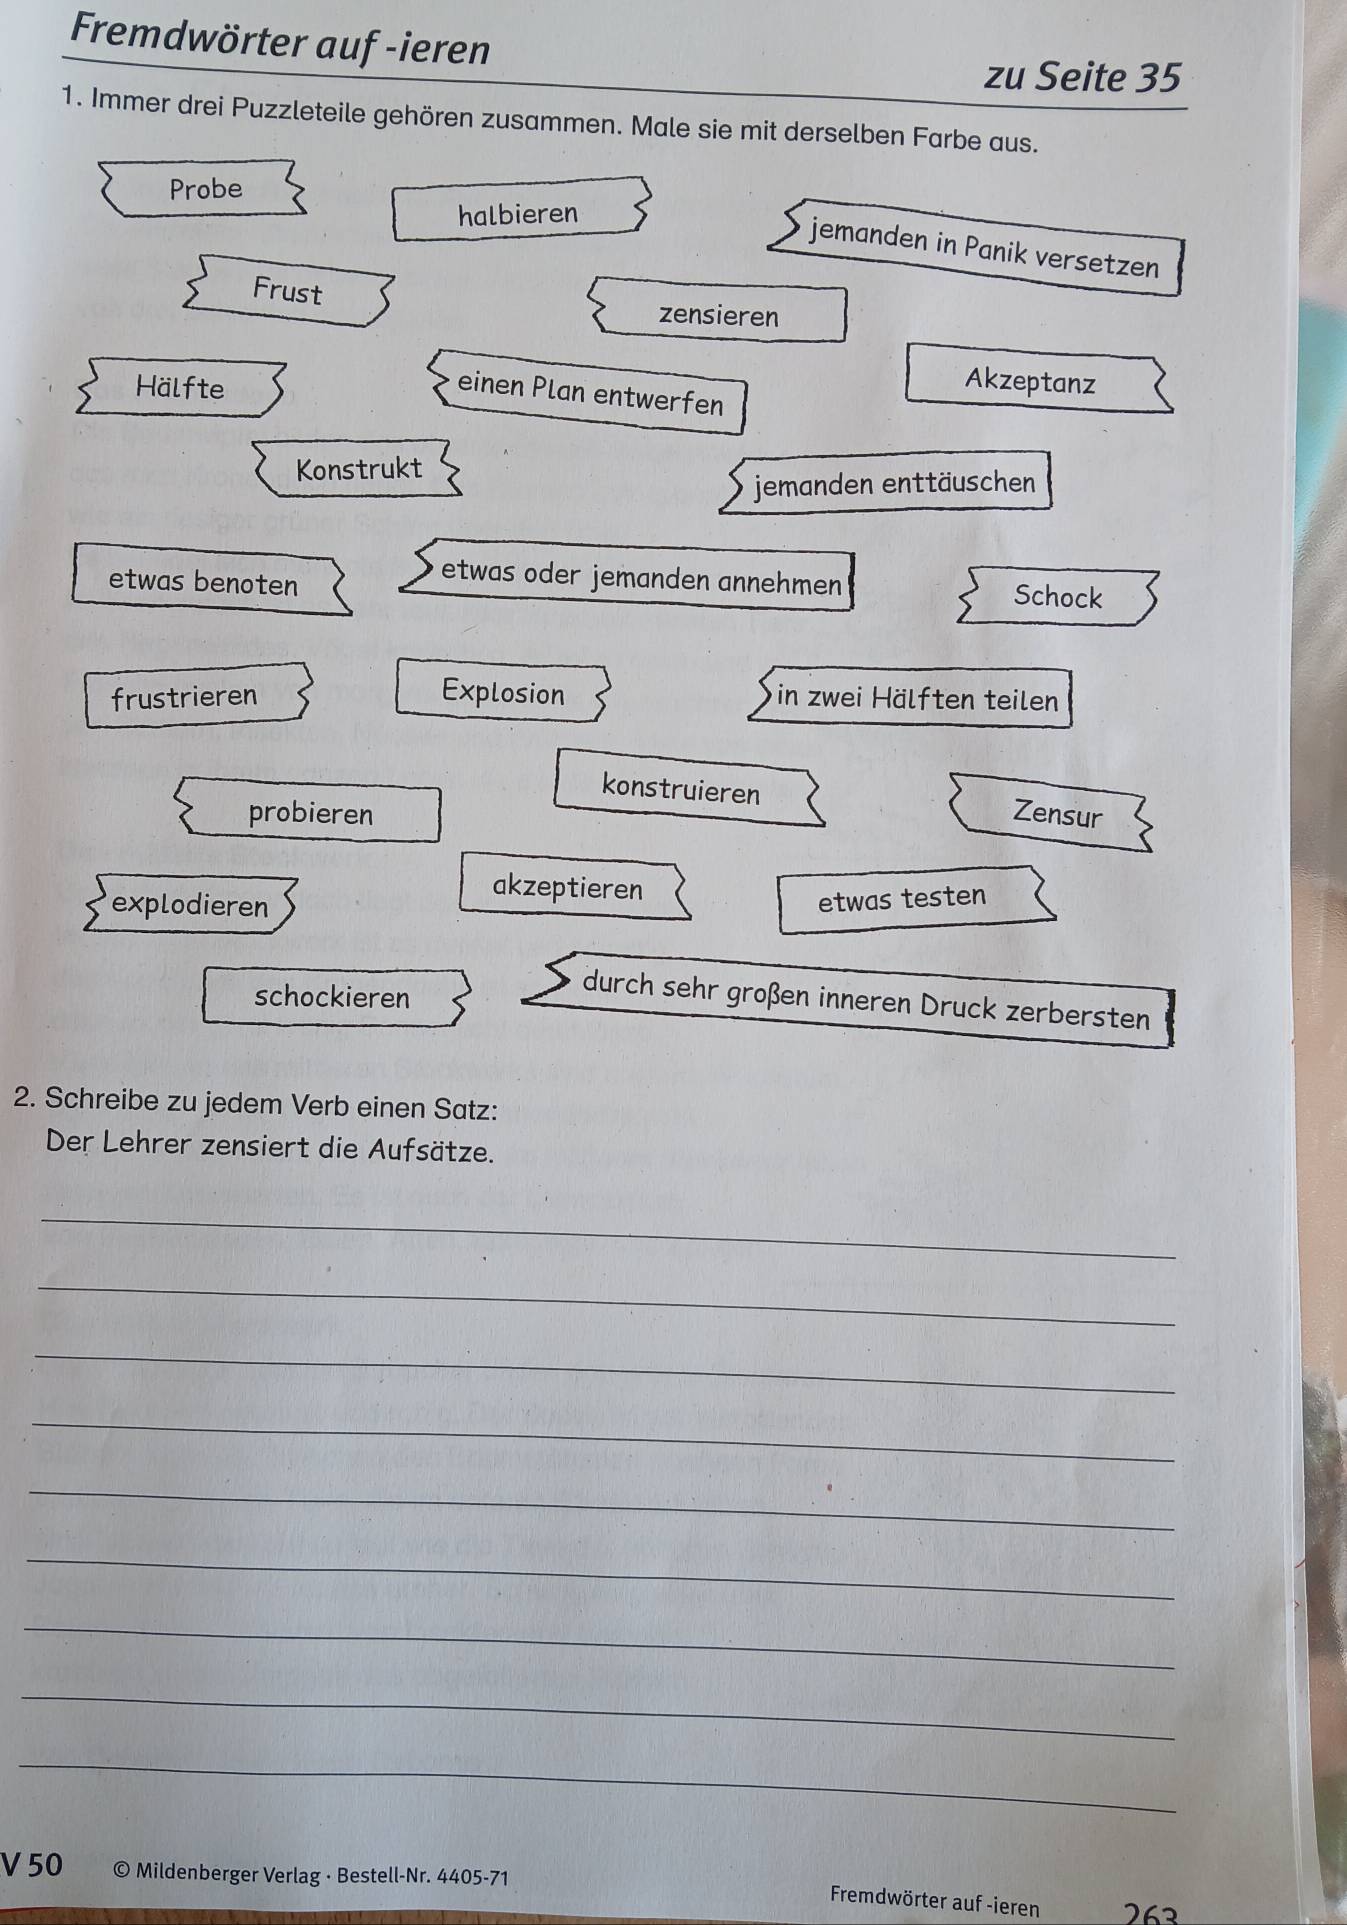 Fremdwörter auf -ieren
zu Seite 35
1. Immer drei Puzzleteile gehören zusammen. Male sie mit derselben Farbe aus.
Probe
halbieren
jemanden in Panik versetzen
Frust
zensieren
Hälfte
einen Plan entwerfen
Akzeptanz
Konstrukt
jemanden enttäuschen
etwas benoten
etwas oder jemanden annehmen
Schock
frustrieren
Explosion
in zwei Hälften teilen
probieren
konstruieren
Zensur
explodieren
akzeptieren
etwas testen
schockieren
durch sehr großen inneren Druck zerbersten
2. Schreibe zu jedem Verb einen Satz:
Der Lehrer zensiert die Aufsätze.
V 50
© Mildenberger Verlag · Bestell-Nr. 4405-71
Fremdwörter auf -ieren
263